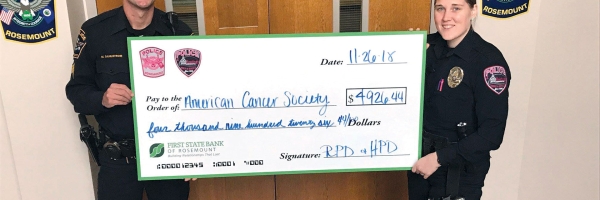 ROSEMOUNT
POLICE
Date: 11-26-18
Pay to the
Order of: American Cancer Society $ 4926.44
four thousand nine hundred twenty six 44/100 Dollars
FIRST STATE BANK
OF ROSEMOUNT
Signature: RPD & HPD
ROSEMOUNT